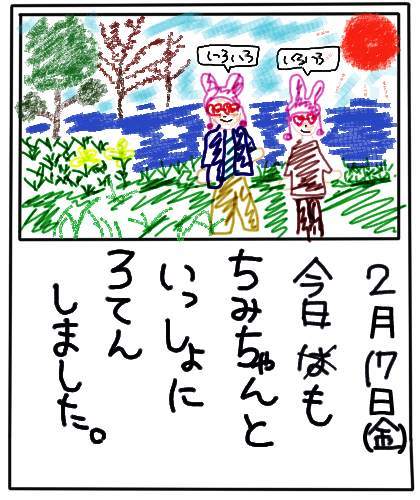 いろいろ
いろいろ
2月17日(金)
今日も
ちみちゃんと
いっしょに
ろてん
しました。